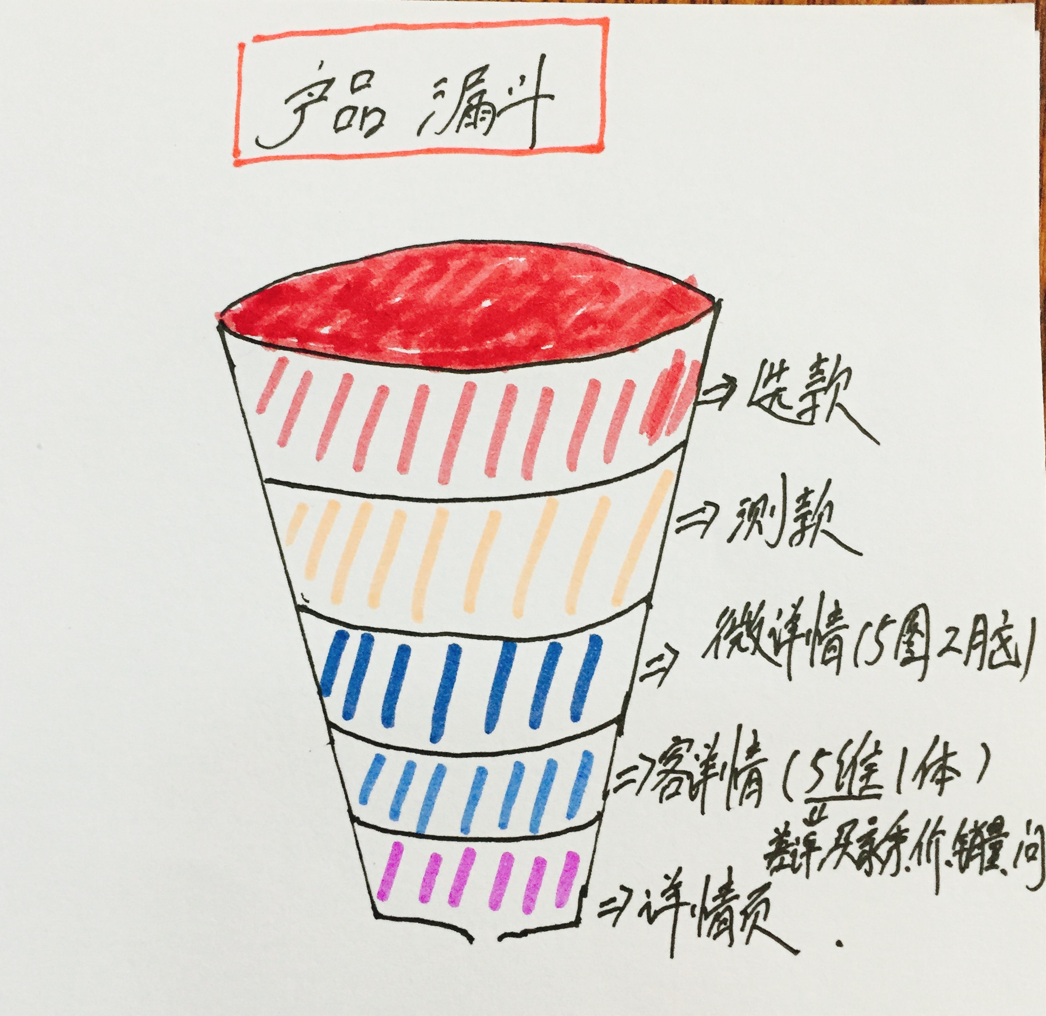 产品漏斗
⇒选款
⇒测款
⇒微详情(5图2月齿)
⇒客详情(5维1体)
⇓
差评.买家秀.价.销量.问
⇒详情页.